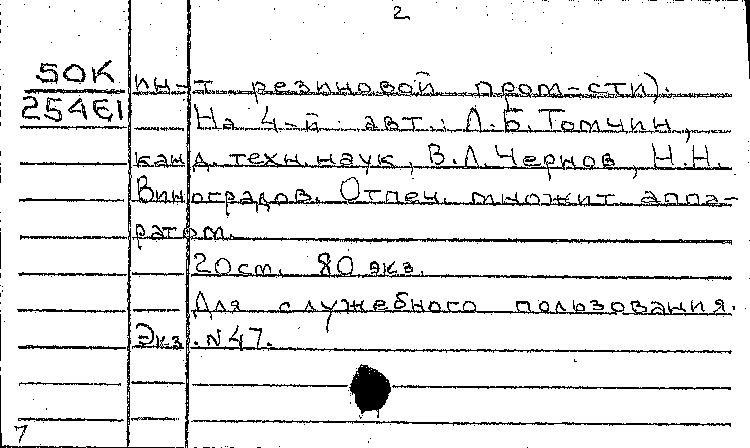 2
50К
254Е1
ин-т резиновой пром-сти).
На 4-й авт.: Л.Б.Томчин,
канд.техн.наук, В.Л.Чернов, Н.Н.
Виноградов. Отпеч. множит. аппа-
ратом.
20см. 80 экз.
Для служебного пользования.
Экз. N47.
7